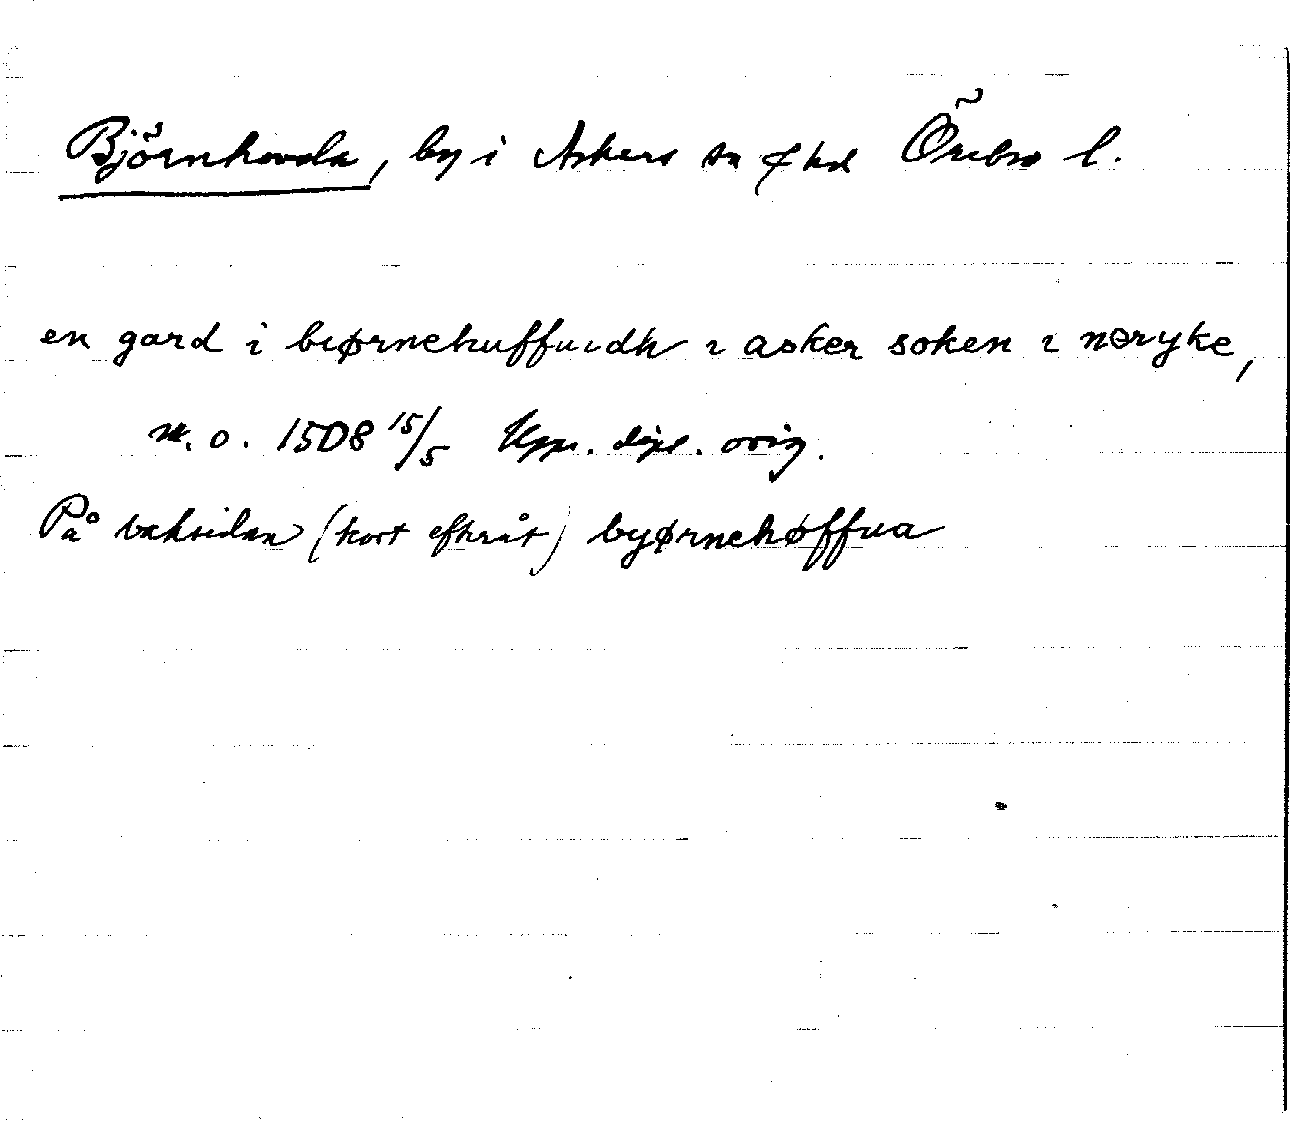 Björnhovda, by i Askers sn o hd Örebro l.
en gard i biørnehuffuidh i asker soken i nœryke,
m. o. 1508 15/5 Upps. dipl. orig.
På baksidan (kort efteråt) byørnehøffua